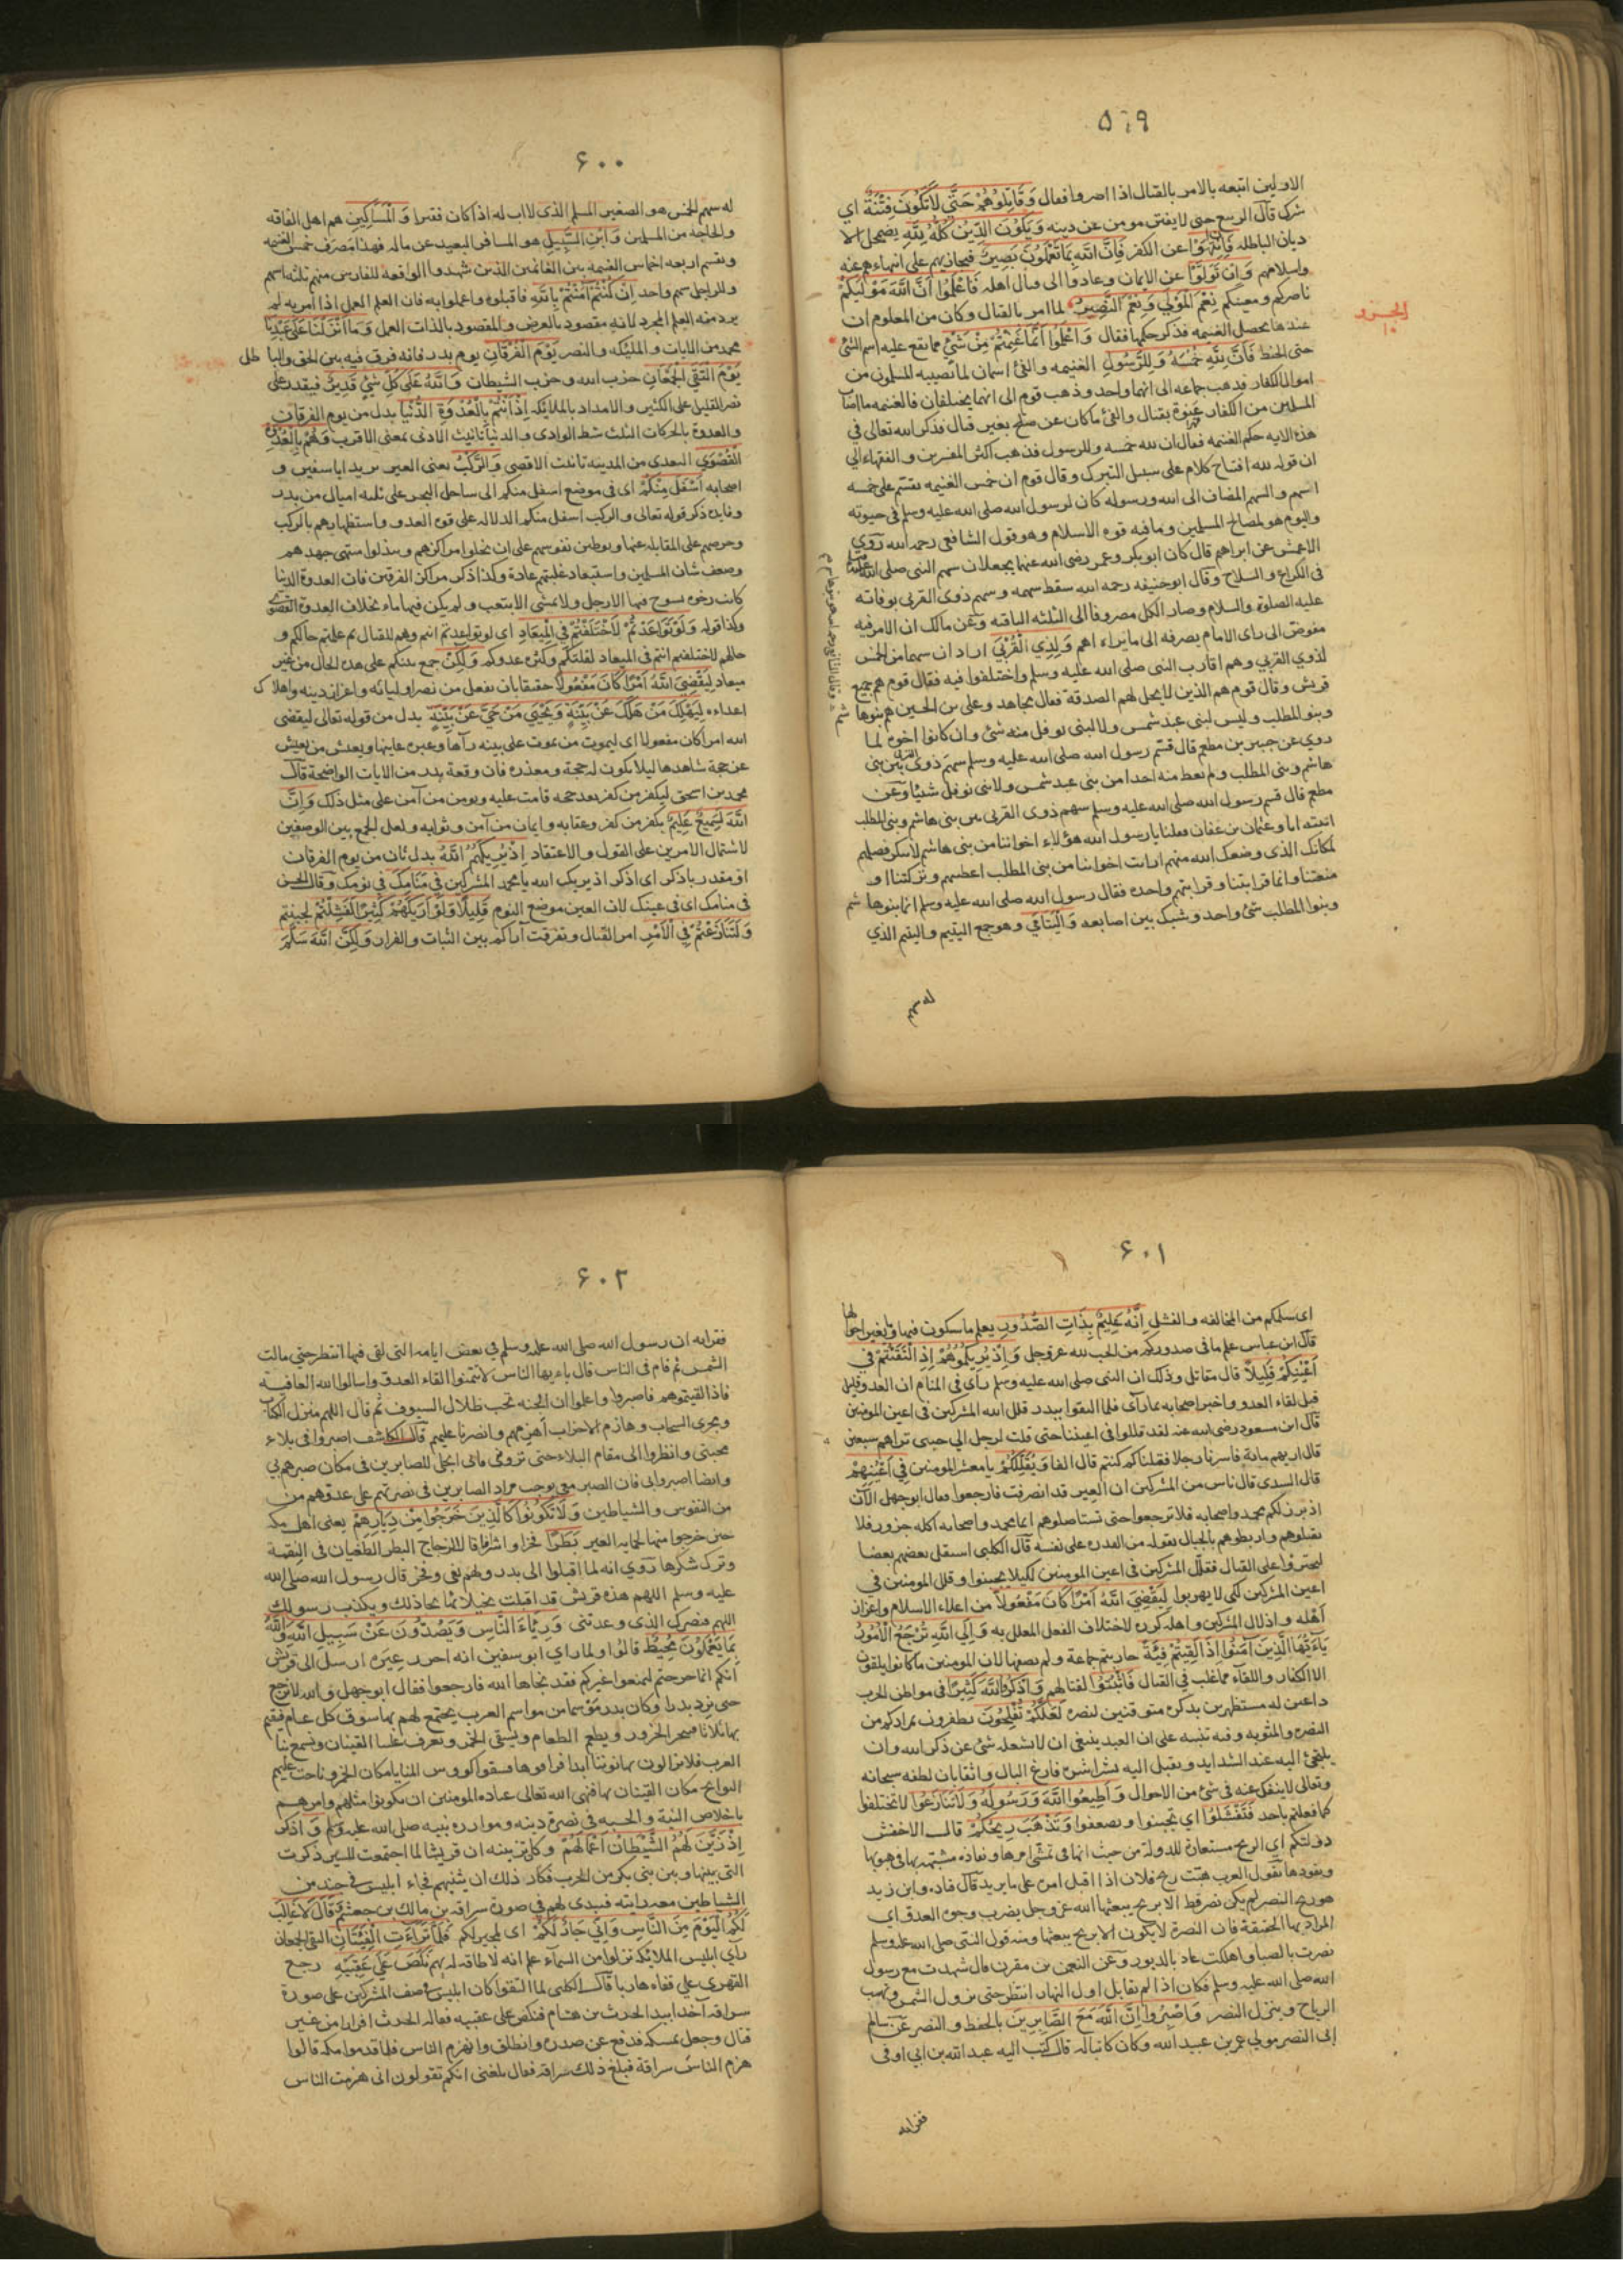 ٥٩٩
الاولين اتبعه بالامر بالقتال اذا اصروا فقال وَقَاتِلُوهُمْ حَتَّى لَا تَكُونَ فِتْنَةٌ اي
شرك قال الربيع حتى لا يفتن مومن عن دينه وَيَكُونَ الدِّينُ كُلُّهُ لِلَّهِ يضمحل الا
ديان الباطله فَإِنِ انْتَهَوْا عن الكفر فَإِنَّ اللَّهَ بِمَا تَعْمَلُونَ بَصِيرٌ فيجازيهم على انتهاءهم عنه
واسلامهم وَإِنْ تَوَلَّوْا عن الايمان وعادوا الى قتال اهله فَاعْلَمُوا أَنَّ اللَّهَ مَوْلَيكُمْ
ناصركم ومعينكم نِعْمَ الْمَوْلَى وَنِعْمَ النَّصِيرُ لما امر بالقتال وكان من المعلوم ان
الجزو ١٠
عندها يحصل الغنيمه فذكر حكمها فقال وَاعْلَمُوا أَنَّمَا غَنِمْتُمْ مِنْ شَيْءٍ مما يقع عليه اسم الشئ
حتى الخيط فَأَنَّ لِلَّهِ خُمُسَهُ وَلِلرَّسُولِ الغنيمه والفئ اسمان لما تصيبه المسلمون من
اموال الكفار فذهب جماعه الى انهما واحد وذهب قوم الى انهما يختلفان فالغنيمه ما اصاب
المسلمين من الكفار عنوة بقتال والفئ ما كان عن صلح بغير قتال فذكر الله تعالى في
هذه الايه حكم الغنيمه فقال ان لله خمسه وللرسول فذهب اكثر المفسرين والفقهاء الي
ان قوله لله افتتاح كلام على سبيل التبرك وقال قوم ان خمس الغنيمه يقسم على خمسه
اسهم والسهم المضاف الى الله ورسوله كان لرسول الله صلى الله عليه وسلم في حيوته
واليوم هو لمصالح المسلمين وما فيه قوه الاسلام وهو قول الشافعي رحمه الله روي
الاعمش عن ابراهيم قال كان ابو بكر وعمر رضى الله عنهما يجعلان سهم النبى صلى الله عليه
فى الكراع والسلاح وقال ابو حنيفه رحمه الله سقط سهمه وسهم ذوى القربى بوفاته
عليه الصلوة والسلام وصار الكل مصروفا الى الثلثه الباقيه وعن مالك ان الامر فيه
مفوض الى راى الامام يصرفه الى ما يراه اهم وَلِذِي الْقُرْبَى اراد ان سهما من الخمس
لذوي القربي وهم اقارب النبى صلى الله عليه وسلم واختلفوا فيه فقال قوم هم جميع
قريش وقال قوم هم الذين لا يحل لهم الصدقة فقال مجاهد وعلى بن الحسين هم بنوها شم
وبنو المطلب وليس لبنى عبد شمس ولا لبنى نوفل منه شئ وان كانوا اخوه لما
روي عن جبير بن مطعم قال قسم رسول الله صلى الله عليه وسلم سهم ذوى القربى بين بنى
هاشم وبنى المطلب ولم يعط منه احدا من بنى عبد شمس ولا بنى نوفل شيئا وعن
مطعم قال قسم رسول الله صلى الله عليه وسلم سهم ذوى القربى بين بنى هاشم وبنى المطلب
اتيته انا وعثمان بن عفان فقلنا يا رسول الله هؤلاء اخواننا من بنى هاشم لا ينكر فضلهم
لمكانك الذى وضعك الله منهم ارايت اخواننا من بنى المطلب اعطيتهم وتركتنا او
منعتنا وانما قرابتنا وقرابتهم واحدة فقال رسول الله صلى الله عليه وسلم انما بنوها شم
وبنوا المطلب شئ واحد وشبك بين اصابعه وَالْيَتَامَى وهو جمع اليتيم واليتيم الذي
له سهم
٦٠٠
له سهم الخمس هو الصغير المسلم الذى لا اب له اذا كان فقيرا وَالْمَسَاكِينِ هم اهل الفاقه
والحاجه من المسلمين وَابْنِ السَّبِيلِ هو المسافر البعيد عن ماله فهذا مصرف خمس الغنيمه
ويقسم اربعه اخماس الغنيمه بين الغانمين الذين شهدوا الواقعه للفارس منهم ثلثه اسهم
وللراجل سهم واحد إِنْ كُنْتُمْ آمَنْتُمْ بِاللَّهِ فاقبلوه واعملوا به فان العلم العمل اذا امر به لم
يرد منه العلم المجرد لانه مقصود بالعرض والمقصود بالذات العمل وَمَا أَنْزَلْنَا عَلَى عَبْدِنَا
محمد من الايات والمليكه والنصر يَوْمَ الْفُرْقَانِ يوم بدر فانه فرق فيه بين الحق والبا طل
يَوْمَ الْتَقَى الْجَمْعَانِ حزب الله وحزب الشيطان وَاللَّهُ عَلَى كُلِّ شَيْءٍ قَدِيرٌ فيقدر على
نصر القليل على الكثير والامداد بالملائكه إِذْ أَنْتُمْ بِالْعُدْوَةِ الدُّنْيَا بدل من يوم الفرقان
والعدوة بالحركات الثلث شط الوادى والدنيا تانيث الادنى بمعنى الاقرب وَهُمْ بِالْعُدْوَةِ
الْقُصْوَى البعدى من المدينه تانيث الاقصى وَالرَّكْبُ يعنى العير يريد ابا سفين و
اصحابه أَسْفَلَ مِنْكُمْ اى فى موضع اسفل منكم الى ساحل البحر على ثلثه اميال من بدر
وفايده ذكر قوله تعالى والركب اسفل منكم الدلاله على قوه العدو واستظهارهم بالركب
وحرصهم على المقابله عنها وتوطين نفوسهم على ان يخلوا مراكزهم ويبذلوا منتهى جهدهم
وضعف شان المسلمين واستبعاد غلبتهم عادة وكذا ذكر مراكز الفرقين فان العدوة الدنيا
كانت رخوه يسوخ فيها الارجل ولا يمشى الا بتعب ولم يكن فيها ماء بخلاف العدوة القصوى
وكذا قوله وَلَوْ تَوَاعَدْتُمْ لَاخْتَلَفْتُمْ فِي الْمِيعَادِ اى لو تواعدتم انتم وهم للقتال ثم علمتم حالكم و
حالهم لاختلفتم انتم فى الميعاد لقلتكم وكثره عدوكم وَلَكِنْ جمع بينكم على هذه الحال من غير
ميعاد لِيَقْضِيَ اللَّهُ أَمْرًا كَانَ مَفْعُولًا حقيقا بان يفعل من نصر اوليائه واعزاز دينه واهلاك
اعداءه لِيَهْلِكَ مَنْ هَلَكَ عَنْ بَيِّنَةٍ وَيَحْيَى مَنْ حَيَّ عَنْ بَيِّنَةٍ بدل من قوله تعالى ليقضى
الله امرا كان مفعولا اى ليموت من يموت على بينه رآها وعبره عاينها ويعيش من يعيش
عن حجة شاهدها ليلا يكون له حجة ومعذره فان وقعة بدر من الايات الواضحة قال
محمد بن اسحق ليكفر من كفر بعد حجه قامت عليه ويومن من آمن على مثل ذلك وَإِنَّ
اللَّهَ لَسَمِيعٌ عَلِيمٌ بكفر من كفر وعقابه وايمان من آمن وثوابه ولعل الجمع بين الوصفين
لاشتمال الامرين على القول والاعتقاد إِذْ يُرِيكَهُمُ اللَّهُ بدل ثان من يوم الفرقان
او مقدر باذكر اى اذكر اذ يريك الله يا محمد المشركين فِي مَنَامِكَ فى نومك وقال الحسن
فى منامك اى فى عينك لان العين موضع النوم قَلِيلًا وَلَوْ أَرَيكَهُمْ كَثِيرًا لَفَشِلْتُمْ لجبنتم
وَلَتَنَازَعْتُمْ فِي الْأَمْرِ امر القتال وتفرقت آراكم بين الثبات والفرار وَلَكِنَّ اللَّهَ سَلَّمَ
٦٠١
اى سلمكم من المخالفه والفشل إِنَّهُ عَلِيمٌ بِذَاتِ الصُّدُورِ يعلم ما سيكون فيها وتغير احوالها
قال ابن عباس علم ما فى صدوركم من الحب لله عز وجل وَإِذْ يُرِيكُمُوهُمْ إِذِ الْتَقَيْتُمْ فِي
أَعْيُنِكُمْ قَلِيلًا قال مقاتل وذلك ان النبى صلى الله عليه وسلم راى فى المنام ان العدو قليل
قبل لقاء العدو واخبر اصحابه بما رآى فلما التقوا ببدر قلل الله المشركين فى اعين المومنين
قال ابن مسعود رضى الله عنه لقد قللوا فى اعيننا حتى قلت لرجل الى جنبى تراهم سبعين
قال اريهم مايه فاسرنا رجلا فقلنا كم كنتم قال الفا وَيُقَلِّلُكُمْ يا معشر المومنين فِي أَعْيُنِهِمْ
قال السدى قال ناس من المشركين ان العير قد انصرفت فارجعوا فقال ابو جهل الآن
اذ برز لكم محمد واصحابه فلا ترجعوا حتى تستاصلوهم انما محمد واصحابه اكله جزور فلا
تقتلوهم واربطوهم بالحبال بقوله من القدره على نفسه قال الكلبى استقل بعضهم بعضا
ليجترؤا على القتال فقلل المشركين فى اعين المومنين لكيلا يجبنوا وقلل المومنين فى
اعين المشركين لكى لا يهربوا لِيَقْضِيَ اللَّهُ أَمْرًا كَانَ مَفْعُولًا من اعلاء الاسلام واعزاز
اهله واذلال المشركين واهله كرره لاختلاف الفعل المعلل به وَإِلَى اللَّهِ تُرْجَعُ الْأُمُورُ
يَا أَيُّهَا الَّذِينَ آمَنُوا إِذَا لَقِيتُمْ فِئَةً حاربتم جماعة ولم يصفها لان المومنين ما كانوا يلقون
الا الكفار واللقآء مما غلب في القتال فَاثْبُتُوا لقتالهم وَاذْكُرُوا اللَّهَ كَثِيرًا فى مواطن الحرب
داعين له مستظهرين بذكره متوقعين لنصره لَعَلَّكُمْ تُفْلِحُونَ تظفرون بمرادكم من
النصره والمثوبه وفيه تنبيه على ان العبد ينبغى ان لا يشغله شئ عن ذكر الله وان
يلتجئ اليه عند الشدايد ويقبل اليه بشراشره فارغ البال واثقا بان لطفه سبحانه
وتعالى لا ينفك عنه فى شئ من الاحوال وَأَطِيعُوا اللَّهَ وَرَسُولَهُ وَلَا تَنَازَعُوا لا تختلفوا
كما فعلتم باحد فَتَفْشَلُوا اي تجبنوا وتضعفوا وَتَذْهَبَ رِيحُكُمْ قال الاخفش
دولتكم اي الريح مستعارة للدولة من حيث انها فى تمشى امرها ونفاذه مشبهة بها فى هبوبها
ونفوذها تقول العرب هبّت ريح فلان اذا اقبل امره على ما يريد قال قتاده وابن زيد
هو ريح النصر لم يكن نصر قط الا بريح يبعثها الله عز وجل يضرب وجوه العدو اى
المراد بها الحقيقة فان النصرة لا يكون الا بريح يبعثها ومنه قول النبى صلى الله عليه وسلم
نصرت بالصبا واهلكت عاد بالدبور وعن النعمن بن مقرن قال شهدت مع رسول
الله صلى الله عليه وسلم فكان اذا لم يقاتل اول النهار انتظر حتى تزول الشمس وتهب
الرياح وينزل النصر وَاصْبِرُوا إِنَّ اللَّهَ مَعَ الصَّابِرِينَ بالحفظ والنصر عن سالم
ابى النضر مولى عمر بن عبيد الله وكان كاتبا له قال كتب اليه عبد الله بن ابى اوفى
فقرأته
٦٠٢
فقرأته ان رسول الله صلى الله عليه وسلم في بعض ايامه التى لقى فيها انتظر حتى مالت
الشمس ثم قام فى الناس قال يا ءيها الناس لا تتمنوا القاء العدو واسالوا الله العافيه
فاذا لقيتموهم فاصبروا واعلموا ان الجنه تحت ظلال السيوف ثم قال اللهم منزل الكتاب
ومجرى السحاب وهازم الاحزاب اهزمهم وانصرنا عليهم قال الكاشف اصبروا فى بلاء
محبتى وانظروا الى مقام البلاء حتى ترونى فانى اتجلى للصابرين فى مكان صبرهم بي
وايضا اصبروا بى فان الصبر معى يوجب مراد الصابرين فى نصرتهم على عدوهم من
من النفوس والشياطين وَلَا تَكُونُوا كَالَّذِينَ خَرَجُوا مِنْ دِيَارِهِمْ يعنى اهل مكه
حين خرجوا منها لحمايه العير بَطَرًا فخرا واشرا قال الزجاج البطر الطغيان فى النعمة
وترك شكرها روي انه لما اقبلوا الى بدر ولهم بغى وفخر قال رسول الله صلى الله
عليه وسلم اللهم هذه قريش قد اقبلت بخيلائها تحاذلك ويكذب رسولك
اللهم فنصرك الذى وعدتنى وَرِئَاءَ النَّاسِ وَيَصُدُّونَ عَنْ سَبِيلِ اللَّهِ وَاللَّهُ
بِمَا يَعْمَلُونَ مُحِيطٌ قالوا ولما راي ابو سفين انه احرز عيره ارسل الى قريش
انكم انما خرجتم لتمنعوا عيركم فقد نجاها الله فارجعوا فقال ابو جهل والله لا نرجع
حتى نرد بدرا وكان بدر موسما من مواسم العرب يجتمع لهم بها سوق كل عام فنقيم
بها ثلاثا فننحر الجزور ونطعم الطعام ونسقى الخمر وتعزف علينا القينان وتسمع بنا
العرب فلا يزالون يهابوننا ابدا فوافوها فسقوا كووس المنايا مكان الخمر وناحت عليهم
النوايح مكان القينات فنهى الله تعالى عباده المومنين ان يكونوا مثلهم وامرهم
باخلاص النية والحسبه في نصره دينه وموازره نبيه صلى الله عليه وسلم وَاذكر
إِذْ زَيَّنَ لَهُمُ الشَّيْطَانُ أَعْمَالَهُمْ وكان تزيينه ان قريشا لما اجتمعت للسير ذكرت
التى بينها وبين بنى بكر من الحرب فكاد ذلك ان يثبهم فجاء ابليس في جند من
الشياطين معه رايته فتبدى لهم فى صورة سراقه بن مالك بن جعشم وَقَالَ لَا غَالِبَ
لَكُمُ الْيَوْمَ مِنَ النَّاسِ وَإِنِّي جَارٌ لَكُمْ اى لمجير لكم فَلَمَّا تَرَاءَتِ الْفِئَتَانِ التقى الجمعان
راي ابليس الملائكة نزلوا من السمآء علم انه لا طاقه له بهم نَكَصَ عَلَى عَقِبَيْهِ رجع
القهقرى على قفاه هاربا قال الكلبى لما التقوا كان ابليس فى صف المشركين على صورة
سراقه آخذا بيد الحرث بن هشام فنكص على عقبيه فقال له الحرث افرارا من غير
قتال وجعل يمسكه فدفع عن صدره وانطلق وانهزم الناس فلما قدموا مكه قالوا
هزم الناس سراقة فبلغ ذلك سراقه فقال بلغنى انكم تقولون انى هزمت الناس